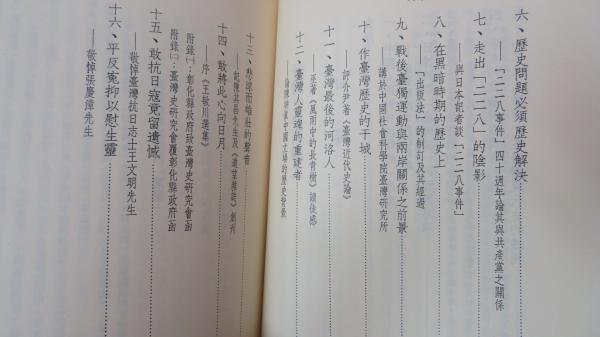 六、歷史問題必須歷史解決
──「二二八事件」四十週年論其與共產黨之關係
七、走出「二二八」的陰影
──與日本記者談「二二八事件」
八、在黑暗時期的歷史上
──「出版法」的制訂及其經過
九、戰後臺獨運動與兩岸關係之前景
──講於中國社會科學院臺灣研究所
十、作臺灣歷史的干城
──評介尹著《臺灣近代史論》
十一、臺灣最後的河洛人
──巫著《風雨中的長青樹》讀後感
十二、臺灣人靈魂的重建者
──論陳映真中國文學的歷史背景
十三、悲涼而雄壯的聲音
──記陳其昌先生及《遠望雜誌》創刊
十四、敢將此心向日月
──序《王敏川選集》
附錄㈠：彰化縣政府致臺灣史研究會函
附錄㈡：臺灣史研究會覆彰化縣政府函
十五、敢抗日寇竟留遺憾
──敬悼臺灣抗日志士王文明先生
十六、平反冤抑以慰生靈
──敬悼張慶漳先生